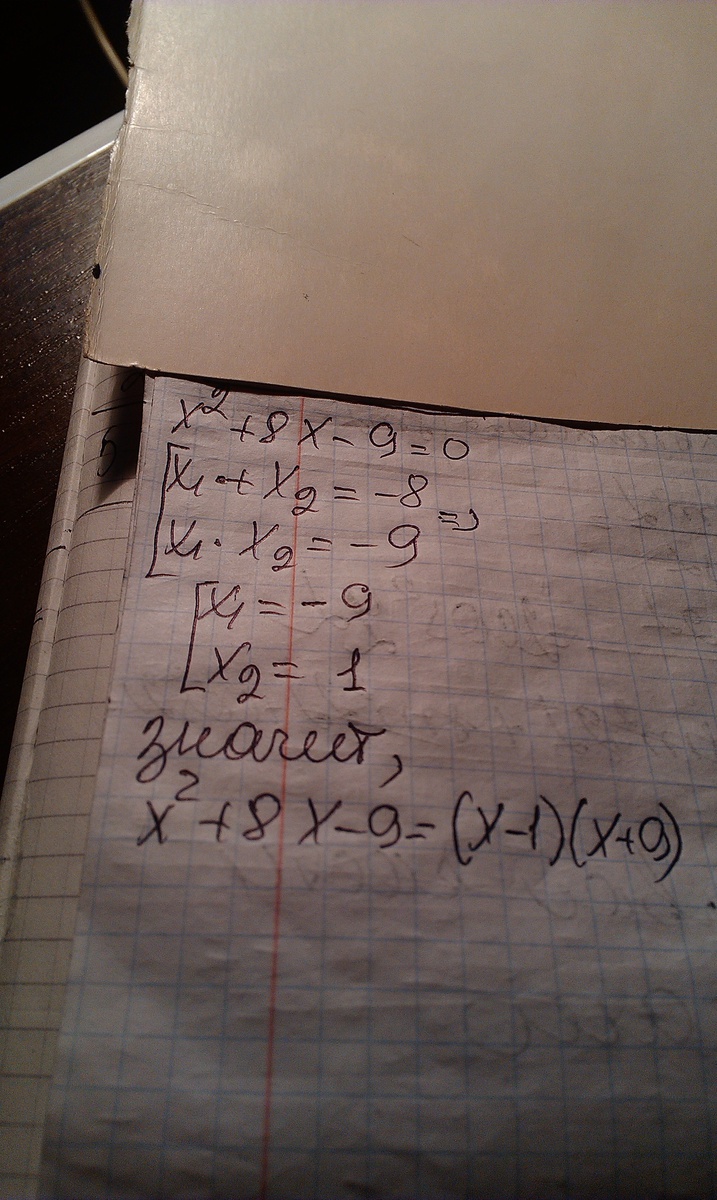 x² + 8x - 9 = 0
x₁ + x₂ = -8
x₁ · x₂ = -9 =>
x₁ = -9
x₂ = 1
значит,
x² + 8x - 9 = (x-1)(x+9)